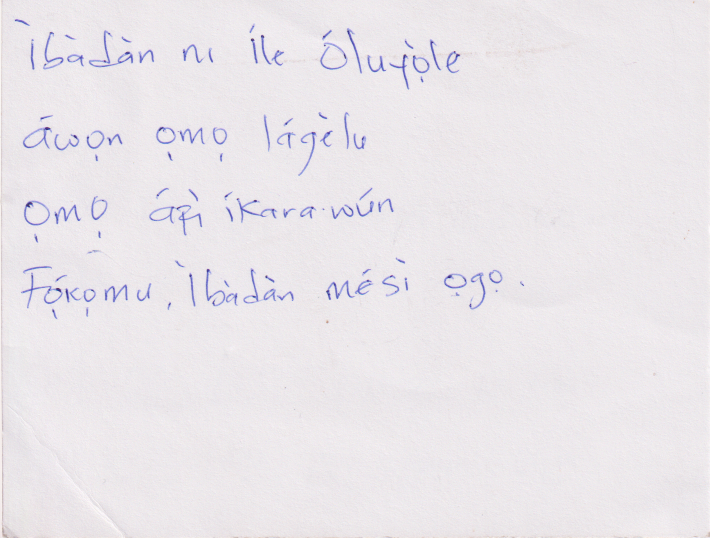 Ìbàdàn nı Íle Óluyọ̀le
áwọn ọmọ lágèlu
ọmọ ápì íkara-wún
Fọ́kọmu, Ìbàdàn mésì ọgọ.